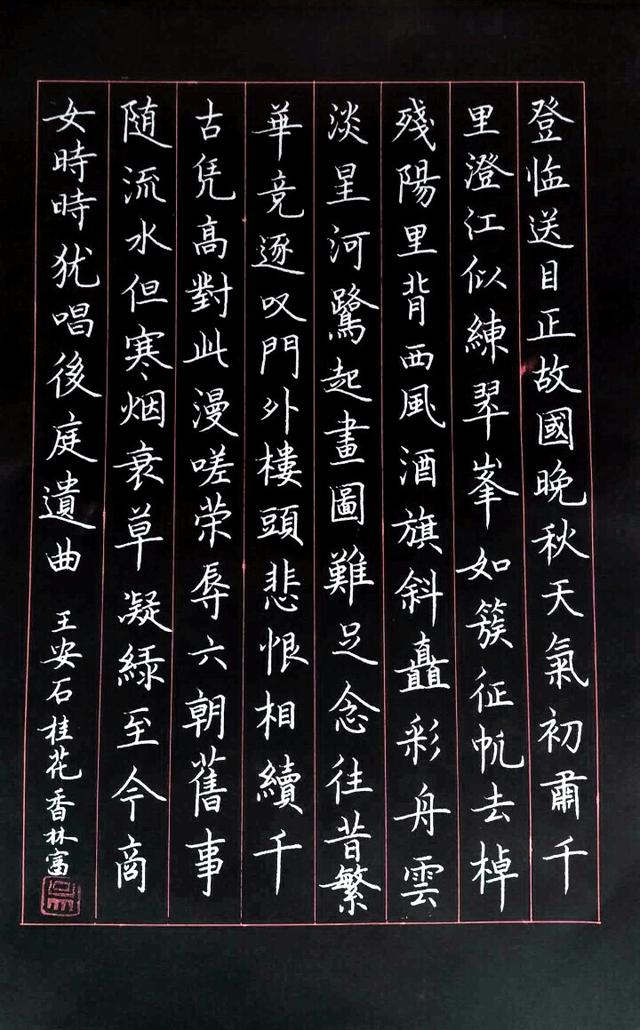 登临送目正故國晚秋天氣初肅千
里澄江似練翠峯如簇征帆去棹
殘陽里背西風酒旗斜矗彩舟雲
淡星河鷺起畫圖難足念往昔繁
華竞逐叹門外樓頭悲恨相續千
古凭高對此漫嗟荣辱六朝舊事
随流水但寒烟衰草凝綠至今商
女時時犹唱後庭遺曲 王安石桂花香林富